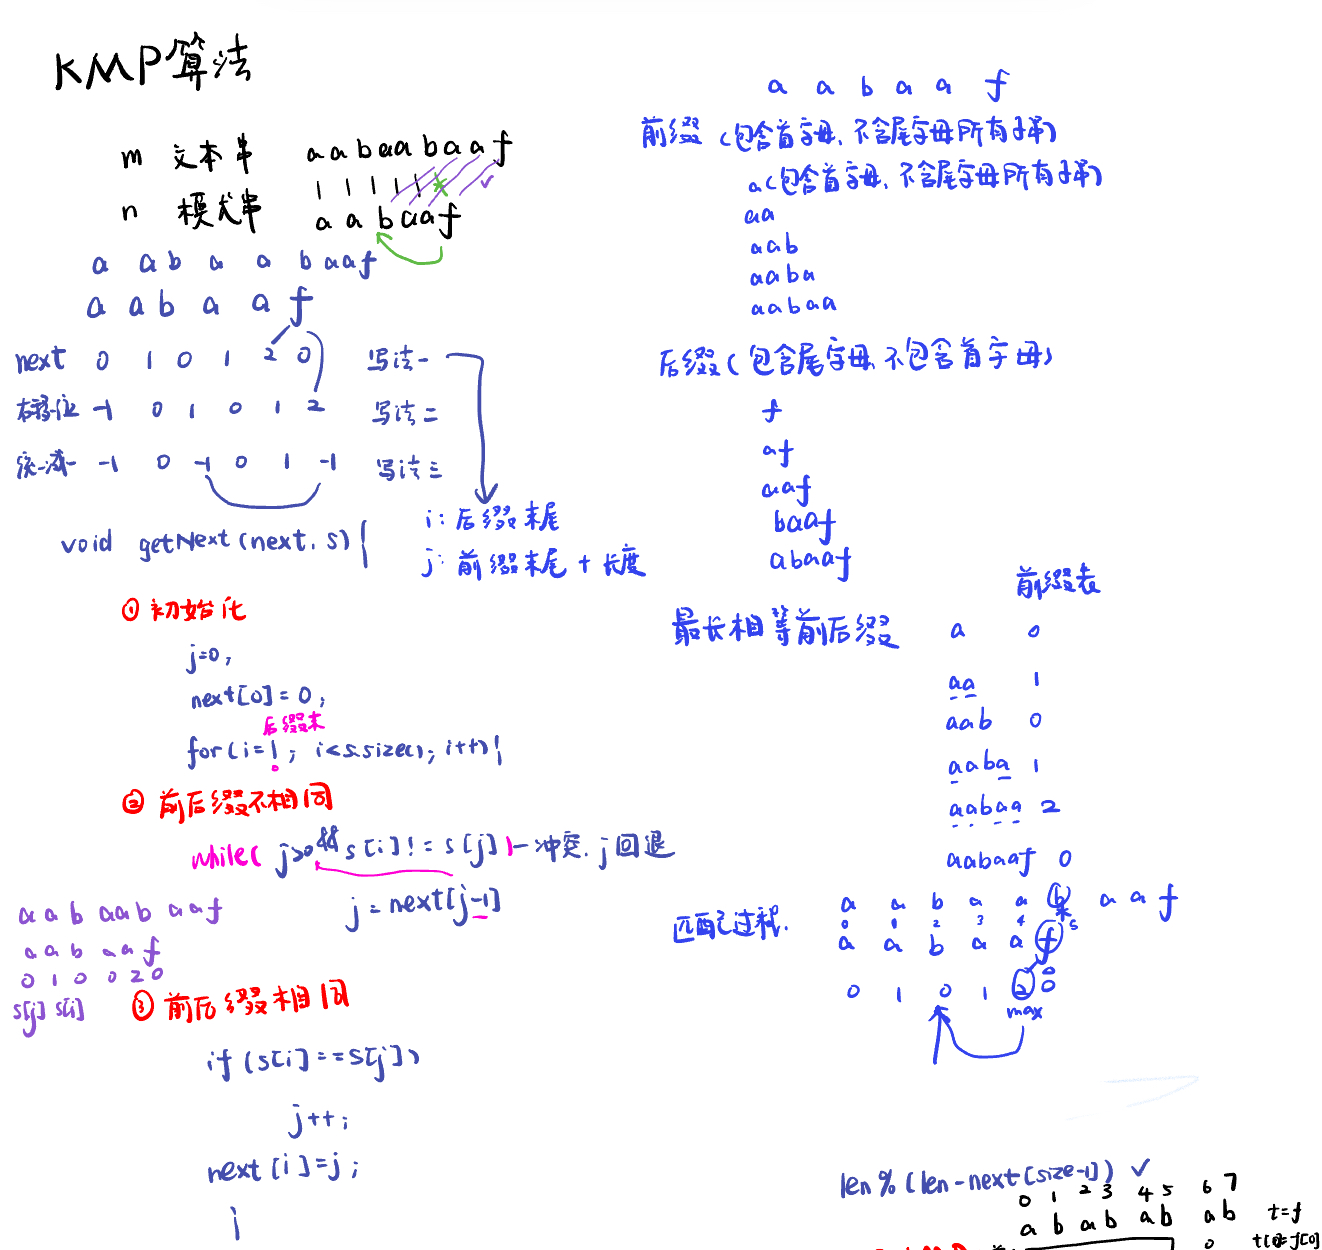 KMP算法
m 文本串 aabaabaaf
n 模式串 aabaaf
a a b a a b a a f
a a b a a f
next 0 1 0 1 2 0 写法一
右移位 -1 0 1 0 1 2 写法二
统一减一 -1 0 -1 0 1 -1 写法三
void getNext(next, s){
i: 后缀末尾
j: 前缀末尾 + 长度
① 初始化
j=0;
next[0]=0;
后缀末
for(i=1; i<s.size(); i++){
② 前后缀不相同
while( j>0 && s[i]!=s[j] )— 冲突, j回退
j=next[j-1]
a a b a a b a a f
a a b a a f
0 1 0 0 2 0
s[j] s[i]
③ 前后缀相同
if(s[i]==s[j])
j++;
next[i]=j;
a a b a a f
前缀(包含首字母,不含尾字母所有子串)
a(包含首字母,不含尾字母所有子串)
aa
aab
aaba
aabaa
后缀(包含尾字母,不包含首字母)
f
af
aaf
baaf
abaaf
前缀表
最长相等前后缀 a 0
aa 1
aab 0
aaba 1
aabaa 2
aabaaf 0
匹配过程. a a b a a b a a f
0 1 2 3 4 5
a a b a a f
0 1 0 1 2 0
max
len%(len-next[size-1]) ✓
0 1 2 3 4 5 6 7
a b a b a b a b t=f
0 t[0]=f[0]